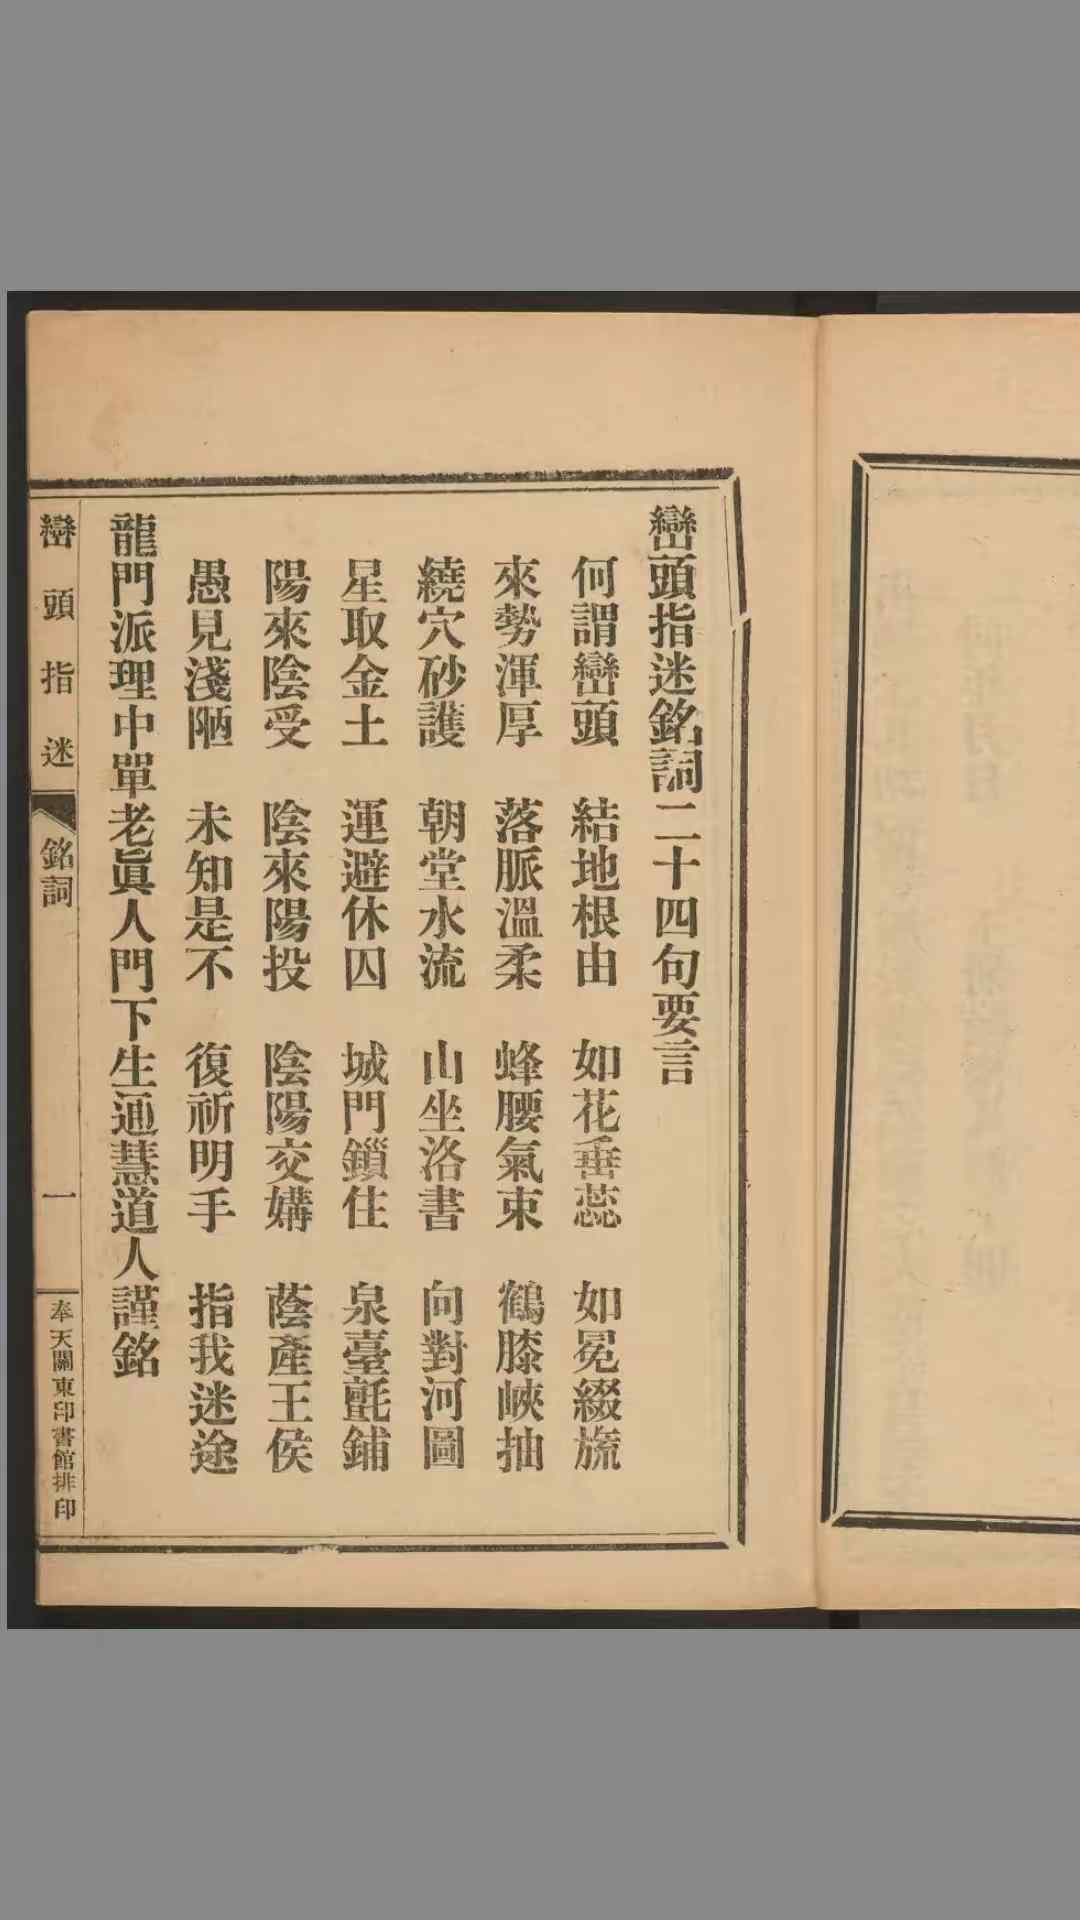 巒頭指迷銘詞二十四句要言
何謂巒頭 結地根由 如花垂蕊 如冕綴旒
來勢渾厚 落脈溫柔 蜂腰氣束 鶴膝峽抽
繞穴砂護 朝堂水流 山坐洛書 向對河圖
星取金土 運避休囚 城門鎖住 泉臺氈鋪
陽來陰受 陰來陽投 陰陽交媾 蔭產王侯
愚見淺陋 未知是不 復祈明手 指我迷途
龍門派理中單老眞人門下生通慧道人謹銘
巒頭指迷 銘詞 一 奉天關東印書館排印